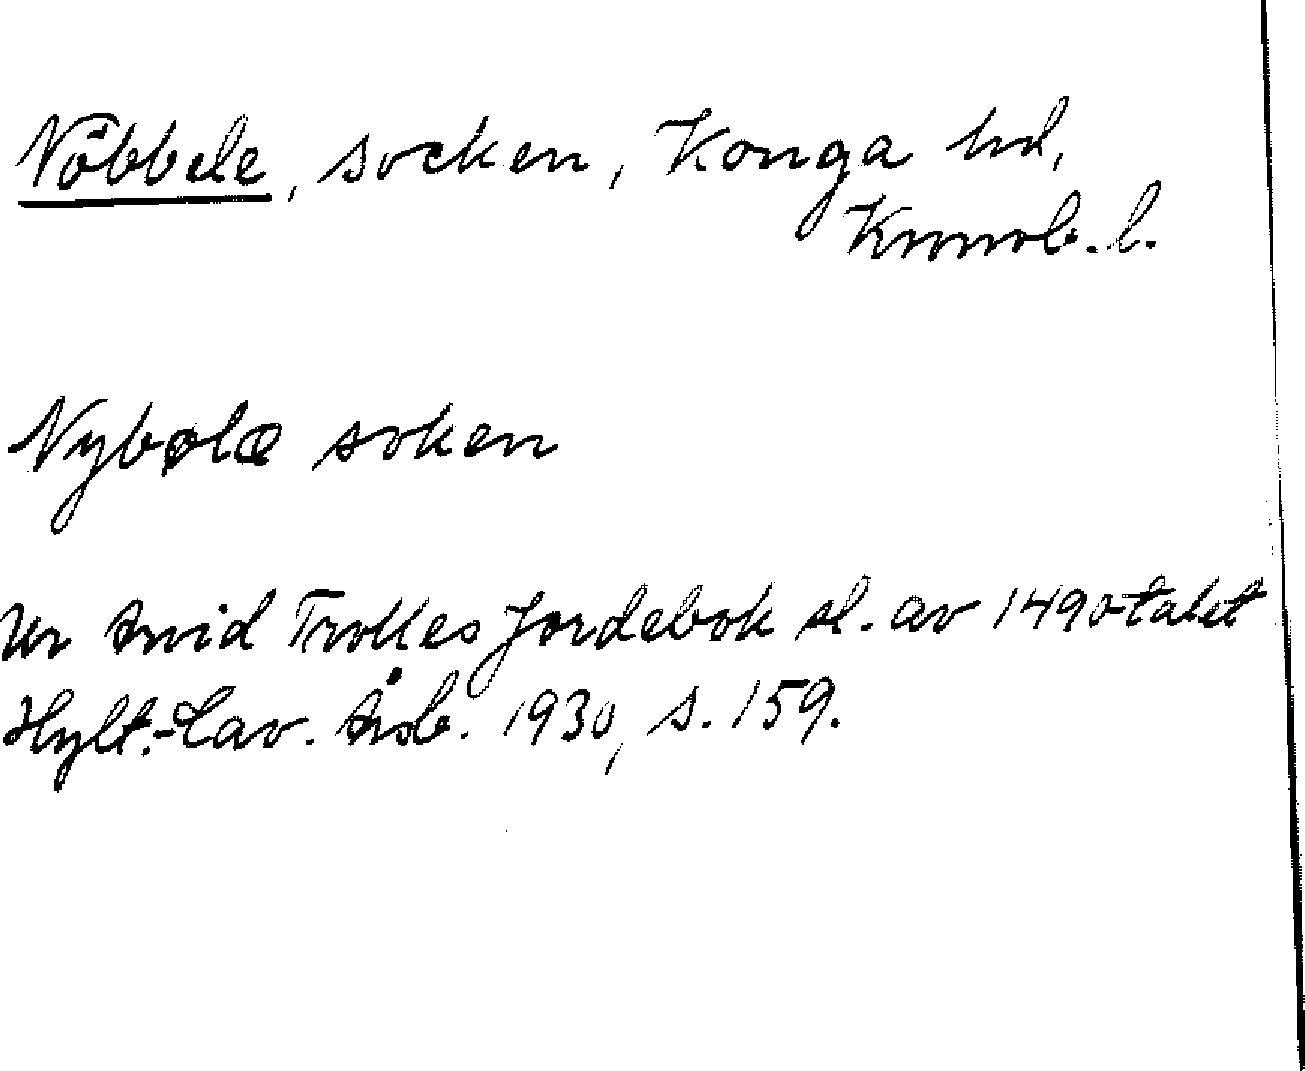 Nöbbele, socken, Konga hd,
Kronob. l.
Nybølæ soken
Ur Arvid Trolles Jordebok sl. av 1490-talet
Hylt.-Cav. Årsb. 1930, s. 159.